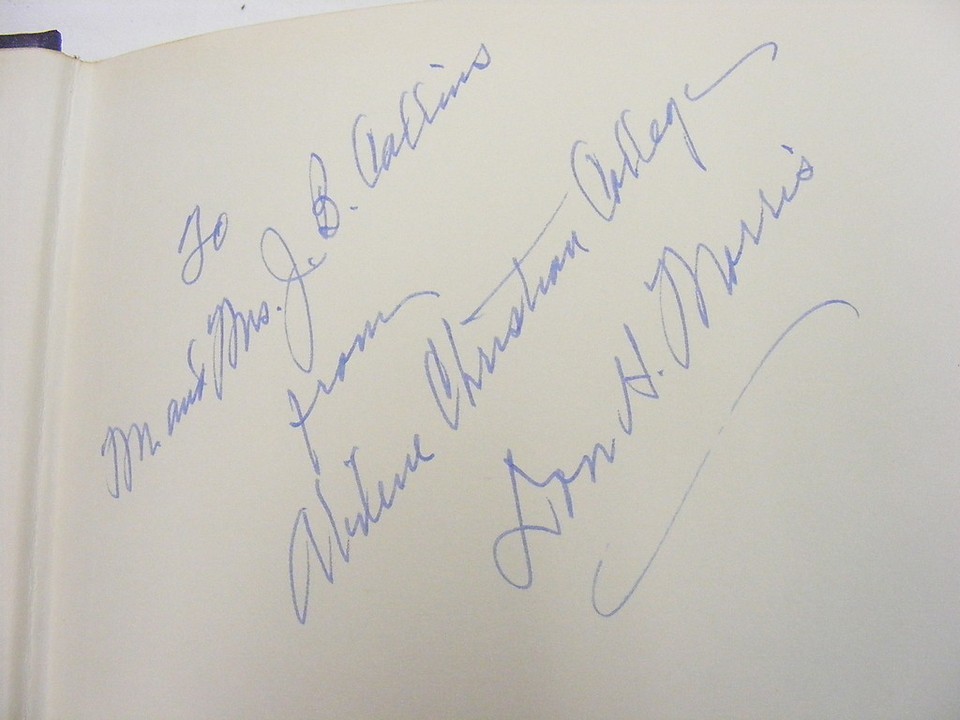 To
Mr. and Mrs. J. B. Collins
from
Abilene Christian College
Don H. Morris